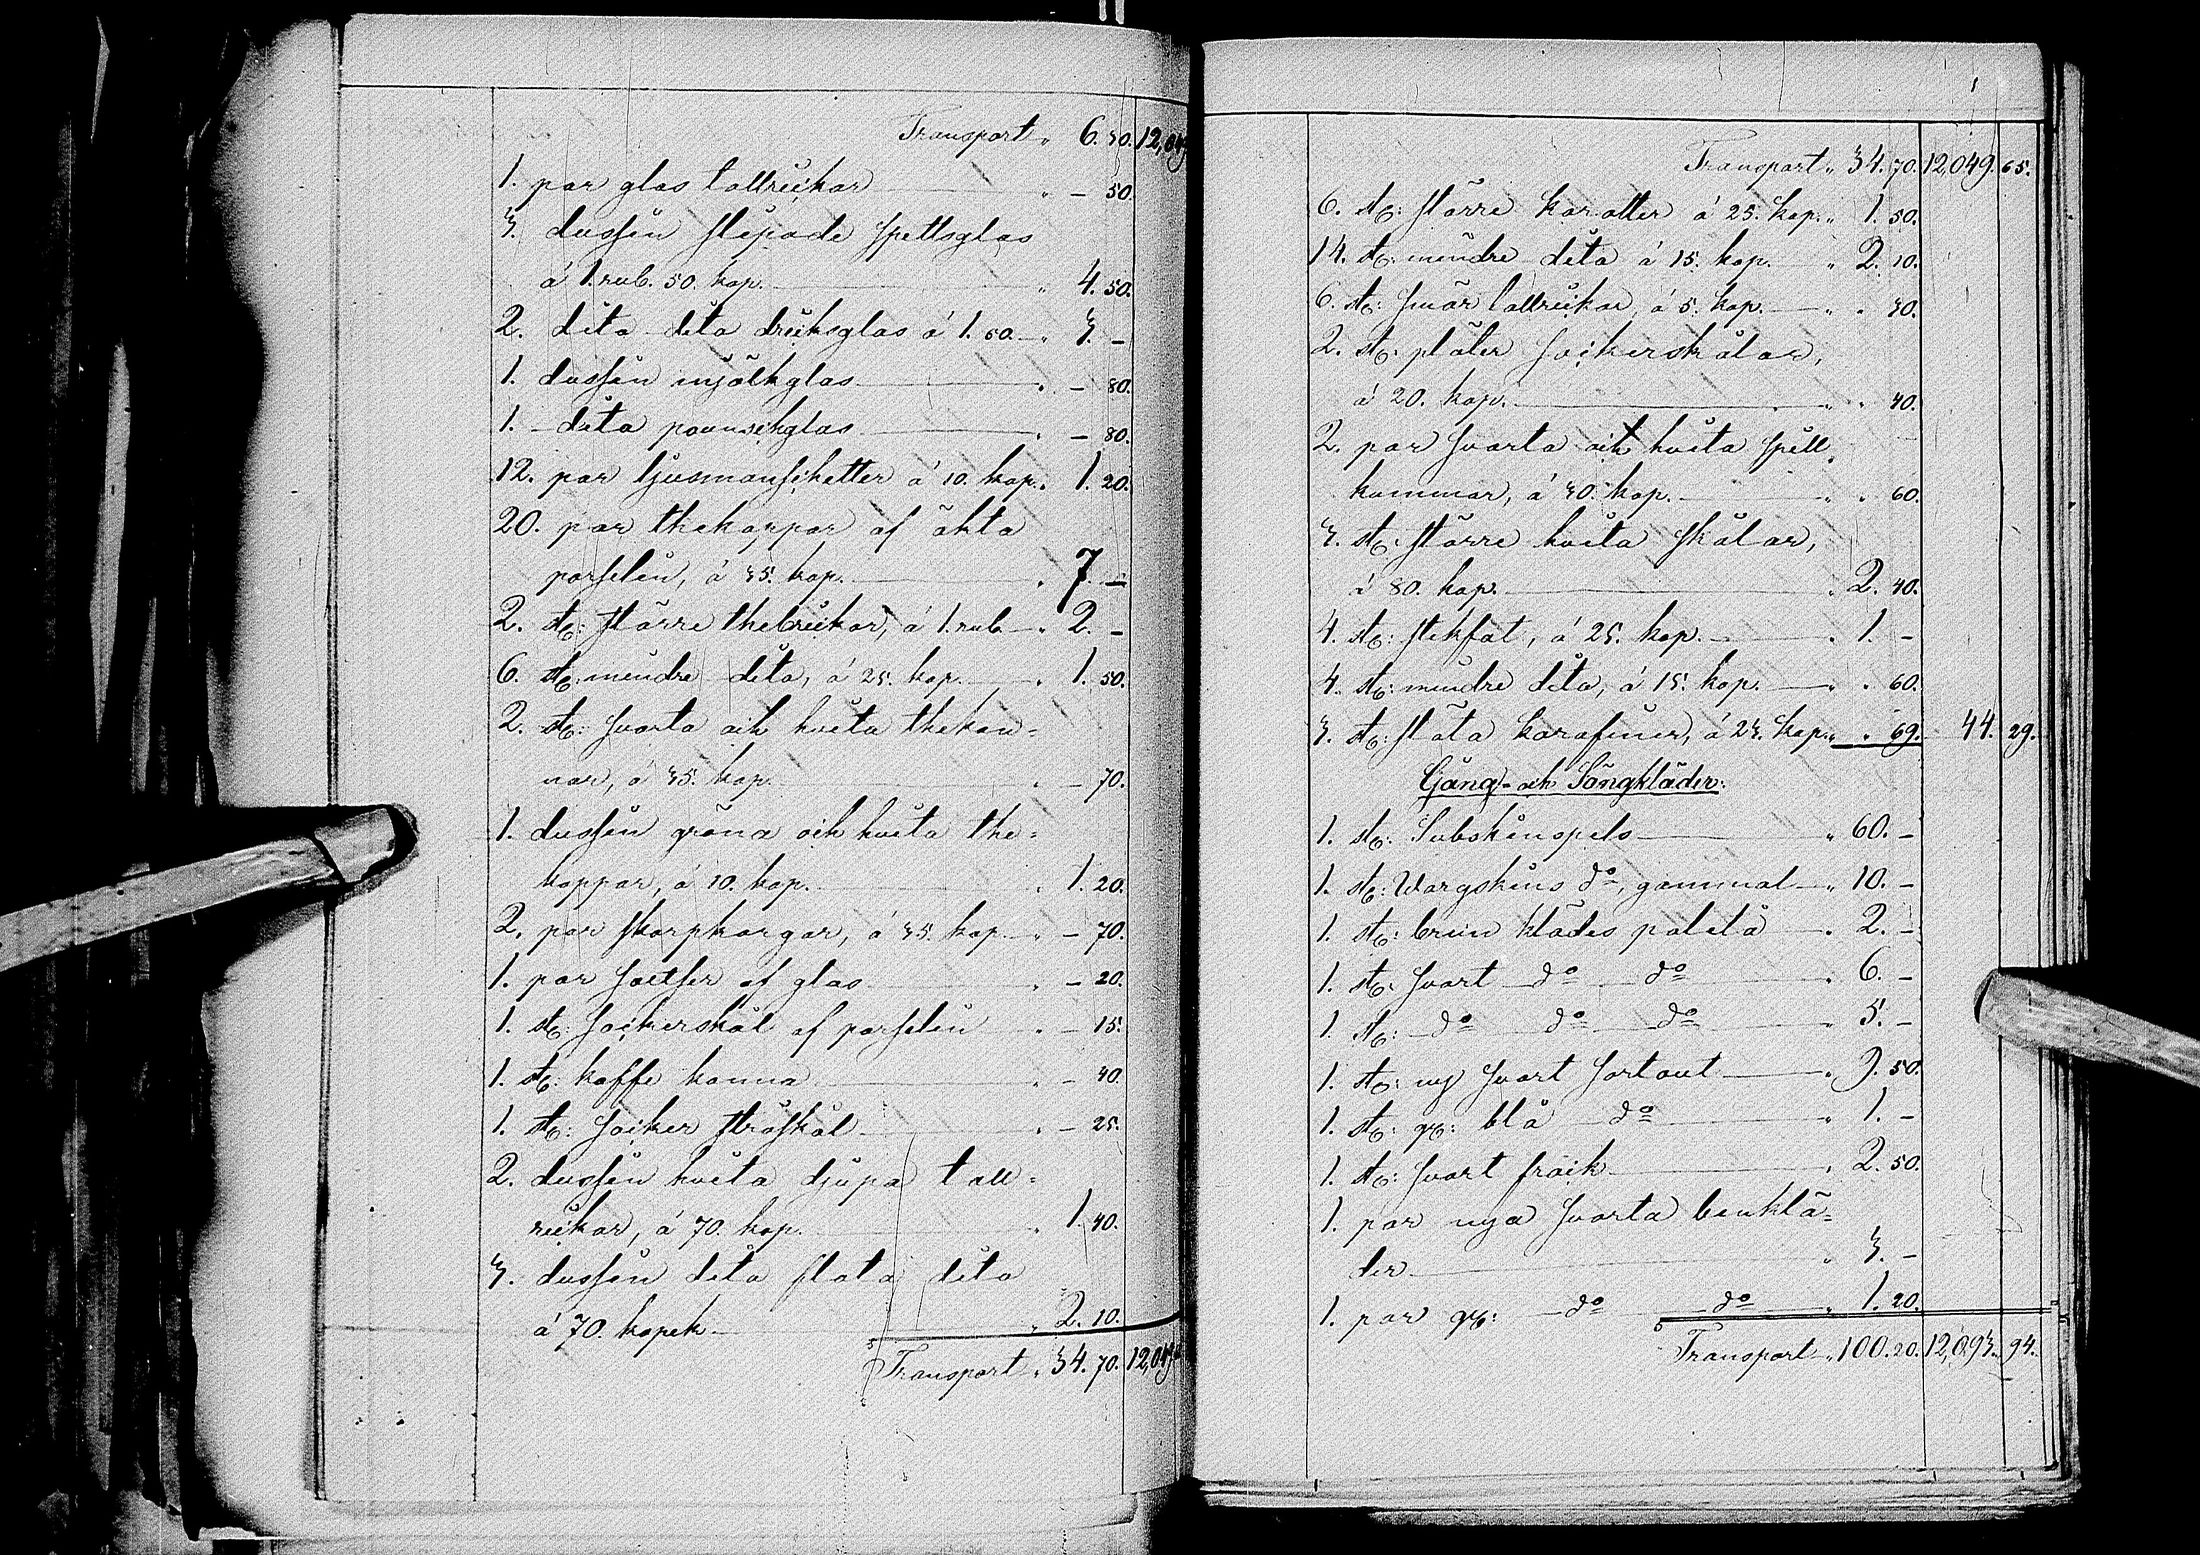 Transport " 6. 30. 12,049
1. par glas tallrickar " — 50.
3. dussin slipade spettsglas
á 1. rub. 50. kop. " 4. 50.
2. dito dito dricksglas á 1. 50. " 3. —
1. dussin mjölkglas " — 80.
1. dito pounschglas " — 80.
12. par ljusmanschetter á 10. kop. " 1. 20.
20. par thekoppar af äkta
porslin, á 35. kop. " 7. —
2. st: större thebrickor, á 1. rub. " 2. —
6. st: mindre dito, á 25. kop. " 1. 50.
2. st: svarta och hvita thekan=
nor, á 35. kop. " — 70.
1. dussin gröna och hvita the=
koppar, á 10. kop. " 1. 20.
2. par skorpkorgar, á 35. kop. " — 70.
1. par saltser af glas " — 20.
1. st: sockerskål af porslin " — 15.
1. st: kaffe kanna " — 40.
1. st: socker ströskål " — 25.
2. dussin hvita djupa tall=
rickar, á 70. kop. " 1. 40.
3. dussin dito flata dito
á 70. kopek " 2. 10.
Transport " 34. 70. 12,049
Transport " 34. 70. 12,049. 65.
6. st: större karotter á 25. kop. " 1. 50.
14. st: mindre dito á 15. kop. " 2. 10.
6. st: smör tallrickar, á 5. kop. " " 30.
2. st: pläter sockerskålar,
á 20. kop. " " 40.
2. par svarta och hvita spill
kummar, á 30. kop. " " 60.
3. st: större hvita skålar,
á 80. kop. " 2. 40.
4. st: stekfat, á 25. kop. " 1. —
4. st: mindre dito, á 15. kop. " " 60.
3. st: släta karafiner, á 23. kop. " " 69. 44. 29.
Gång- och Sängkläder:
1. st: Subskinspels " 60. —
1. st: Wargskins do, gammal " 10. —
1. st: brun klädes paletå " 2. —
1. st: svart do do " 6. —
1. st: do do do " 5. —
1. st: ny svart sortout " 9. 50.
1. st: gl: blå do " 1. —
1. st: svart frack " 2. 50.
1. par nya svarta benklä=
der " 3. —
1. par gl: do do " 1. 20.
Transport " 100. 20. 12,093. 94.